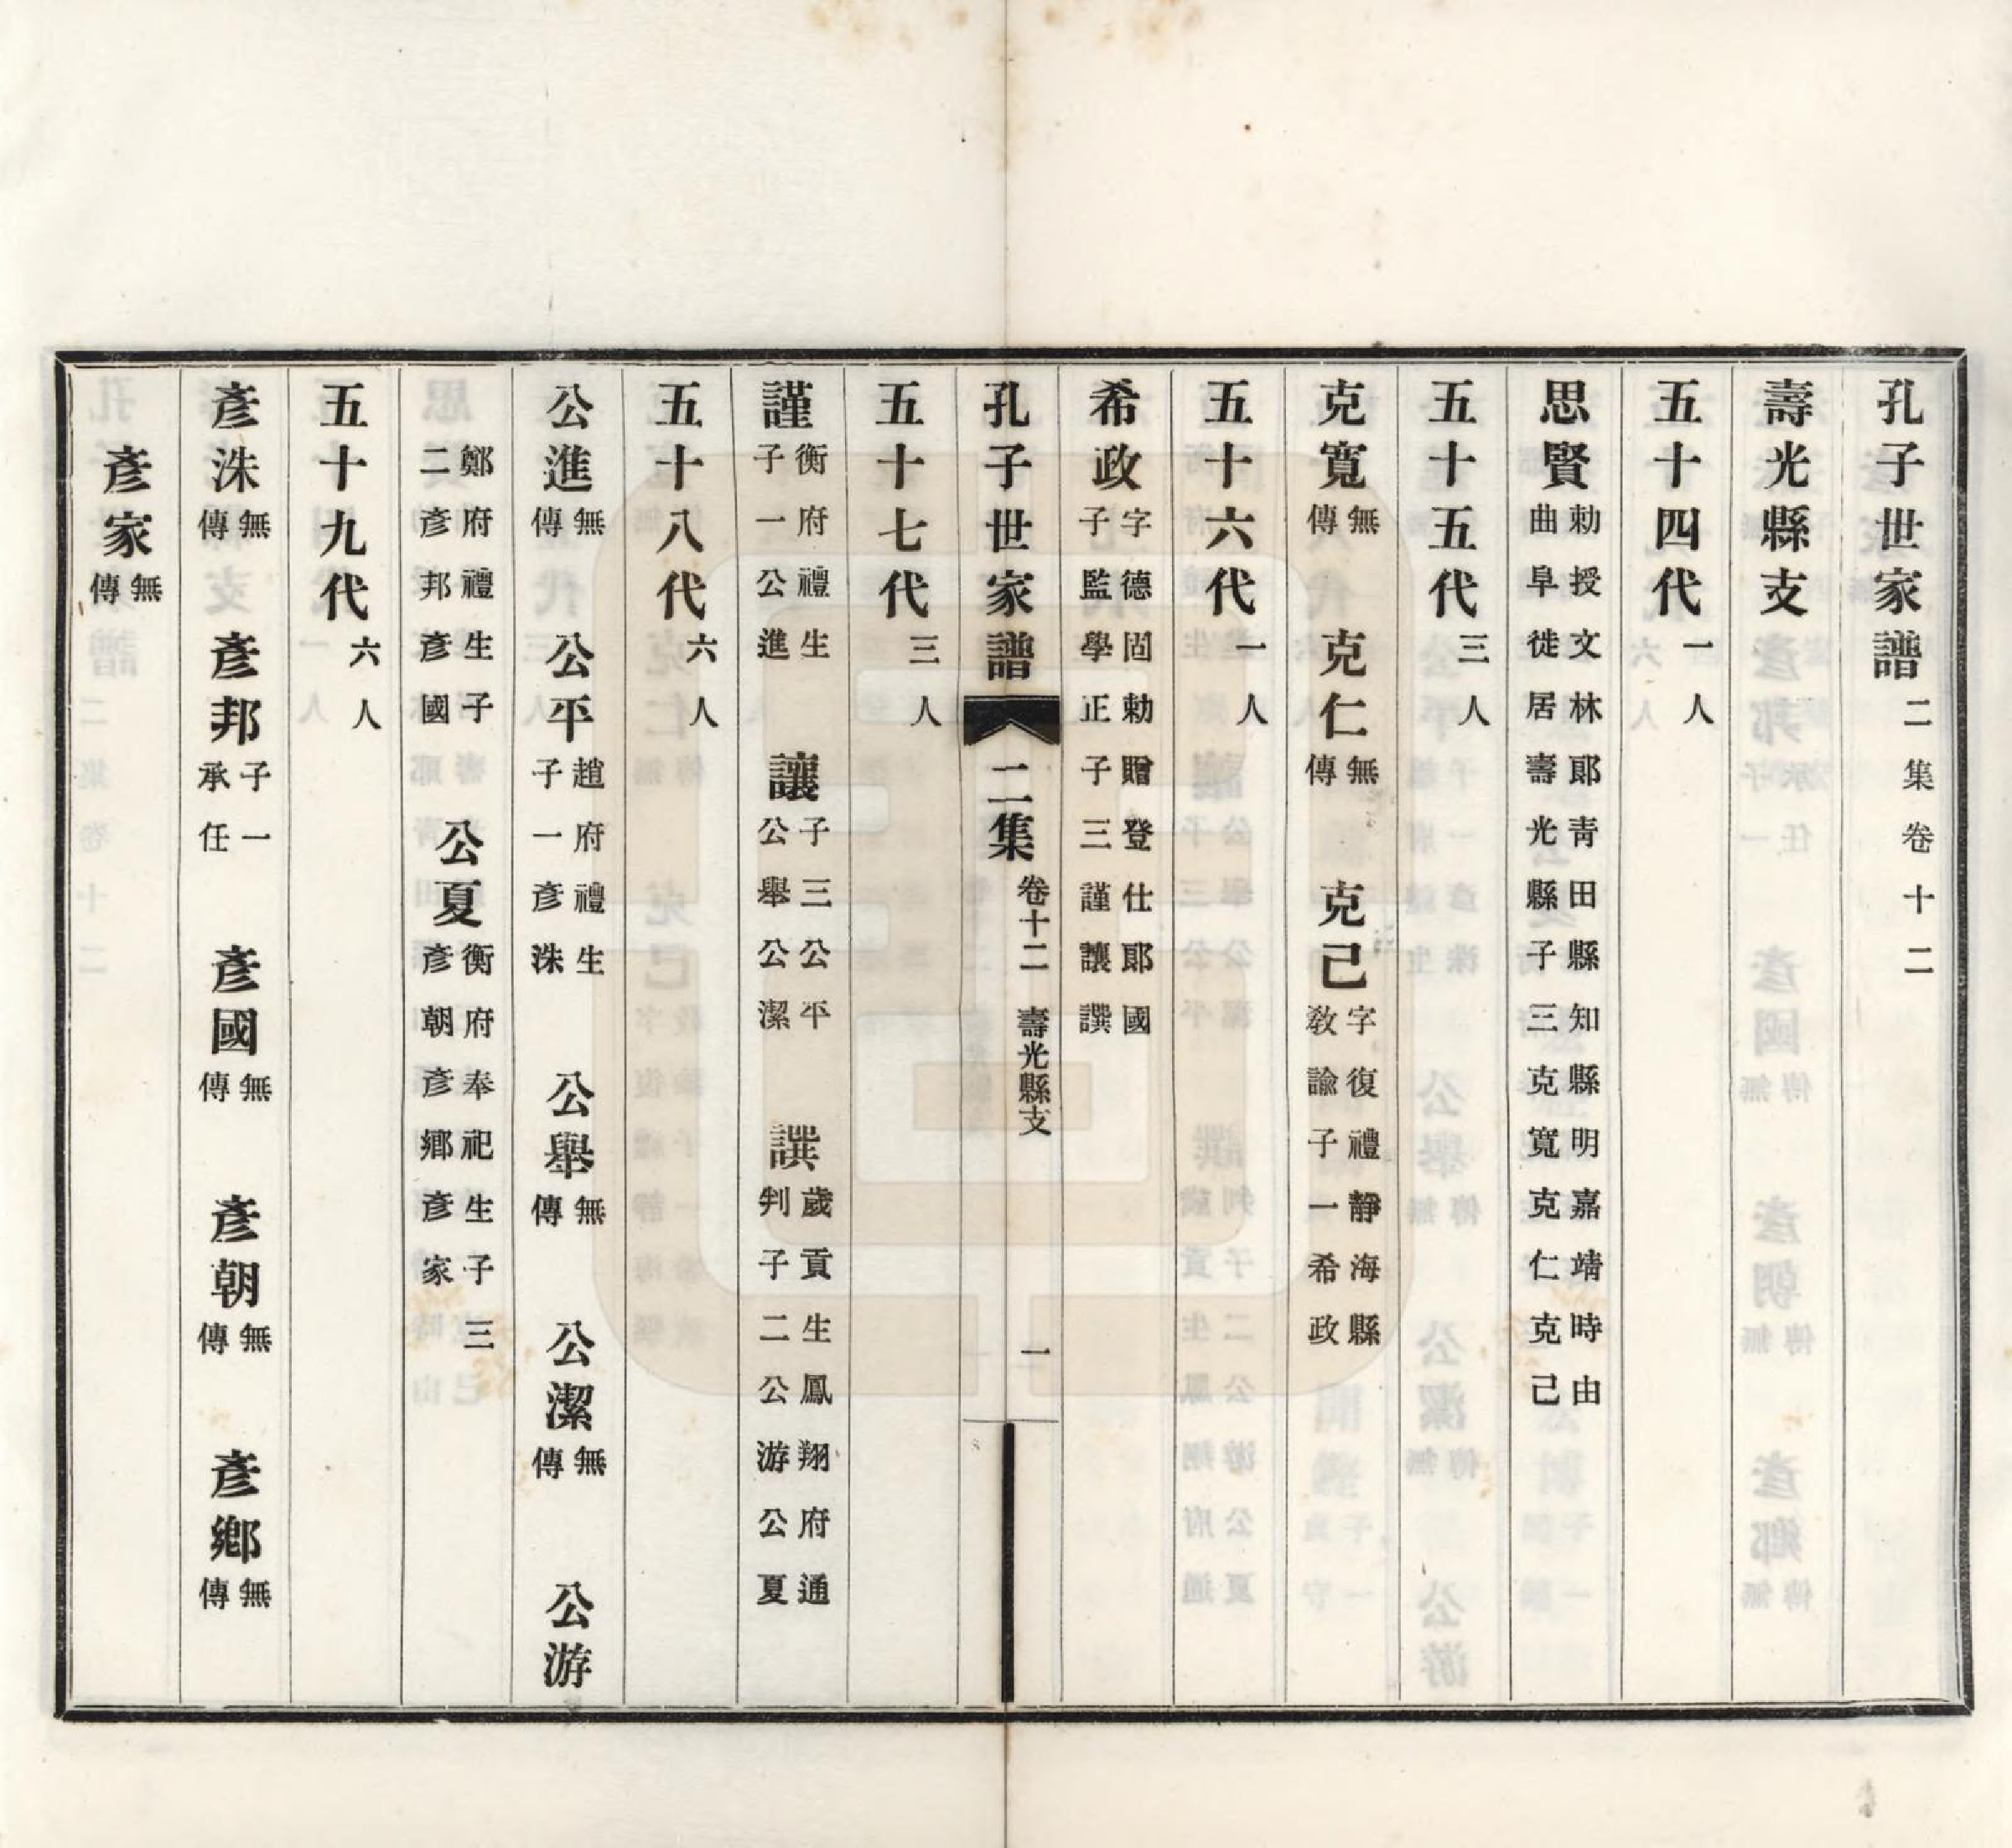 孔子世家譜 二集卷十二
壽光縣支
五十四代 一人
思賢 勅授文林郞青田縣知縣明嘉靖時由曲阜徙居壽光縣子三克寬克仁克己
五十五代 三人
克寬 無傳 克仁 無傳 克己 字復禮靜海縣敎諭子一希政
五十六代 一人
希政 字德固勅贈登仕郞國子監學正子三謹讓譔
孔子世家譜 二集 卷十二 壽光縣支 一
五十七代 三人
謹 衡府禮生子一公進 讓 子三公平公舉公潔 譔 歲貢生鳳翔府通判子二公游公夏
五十八代 六人
公進 無傳 公平 趙府禮生子一彥洙 公舉 無傳 公潔 無傳 公游
鄭府禮生子二彥邦彥國 公夏 衡府奉祀生子三彥朝彥鄉彥家
五十九代 六人
彥洙 無傳 彥邦 子一承任 彥國 無傳 彥朝 無傳 彥鄉 無傳
彥家 無傳